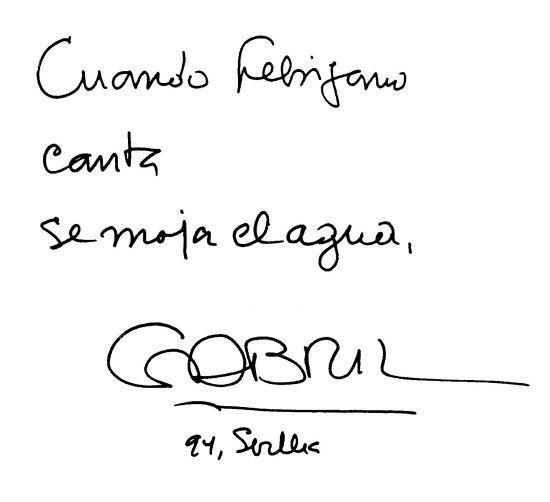 Cuando Lebrijano
canta
se moja el agua.
GABRIEL
94, Sevilla